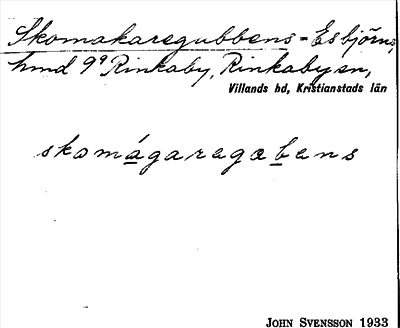 Skomakaregubbens-Esbjörns,
hmd 9⁹ Rinkaby, Rinkaby sn,
Villands hd, Kristianstads län
skomágaregobens
JOHN SVENSSON 1933